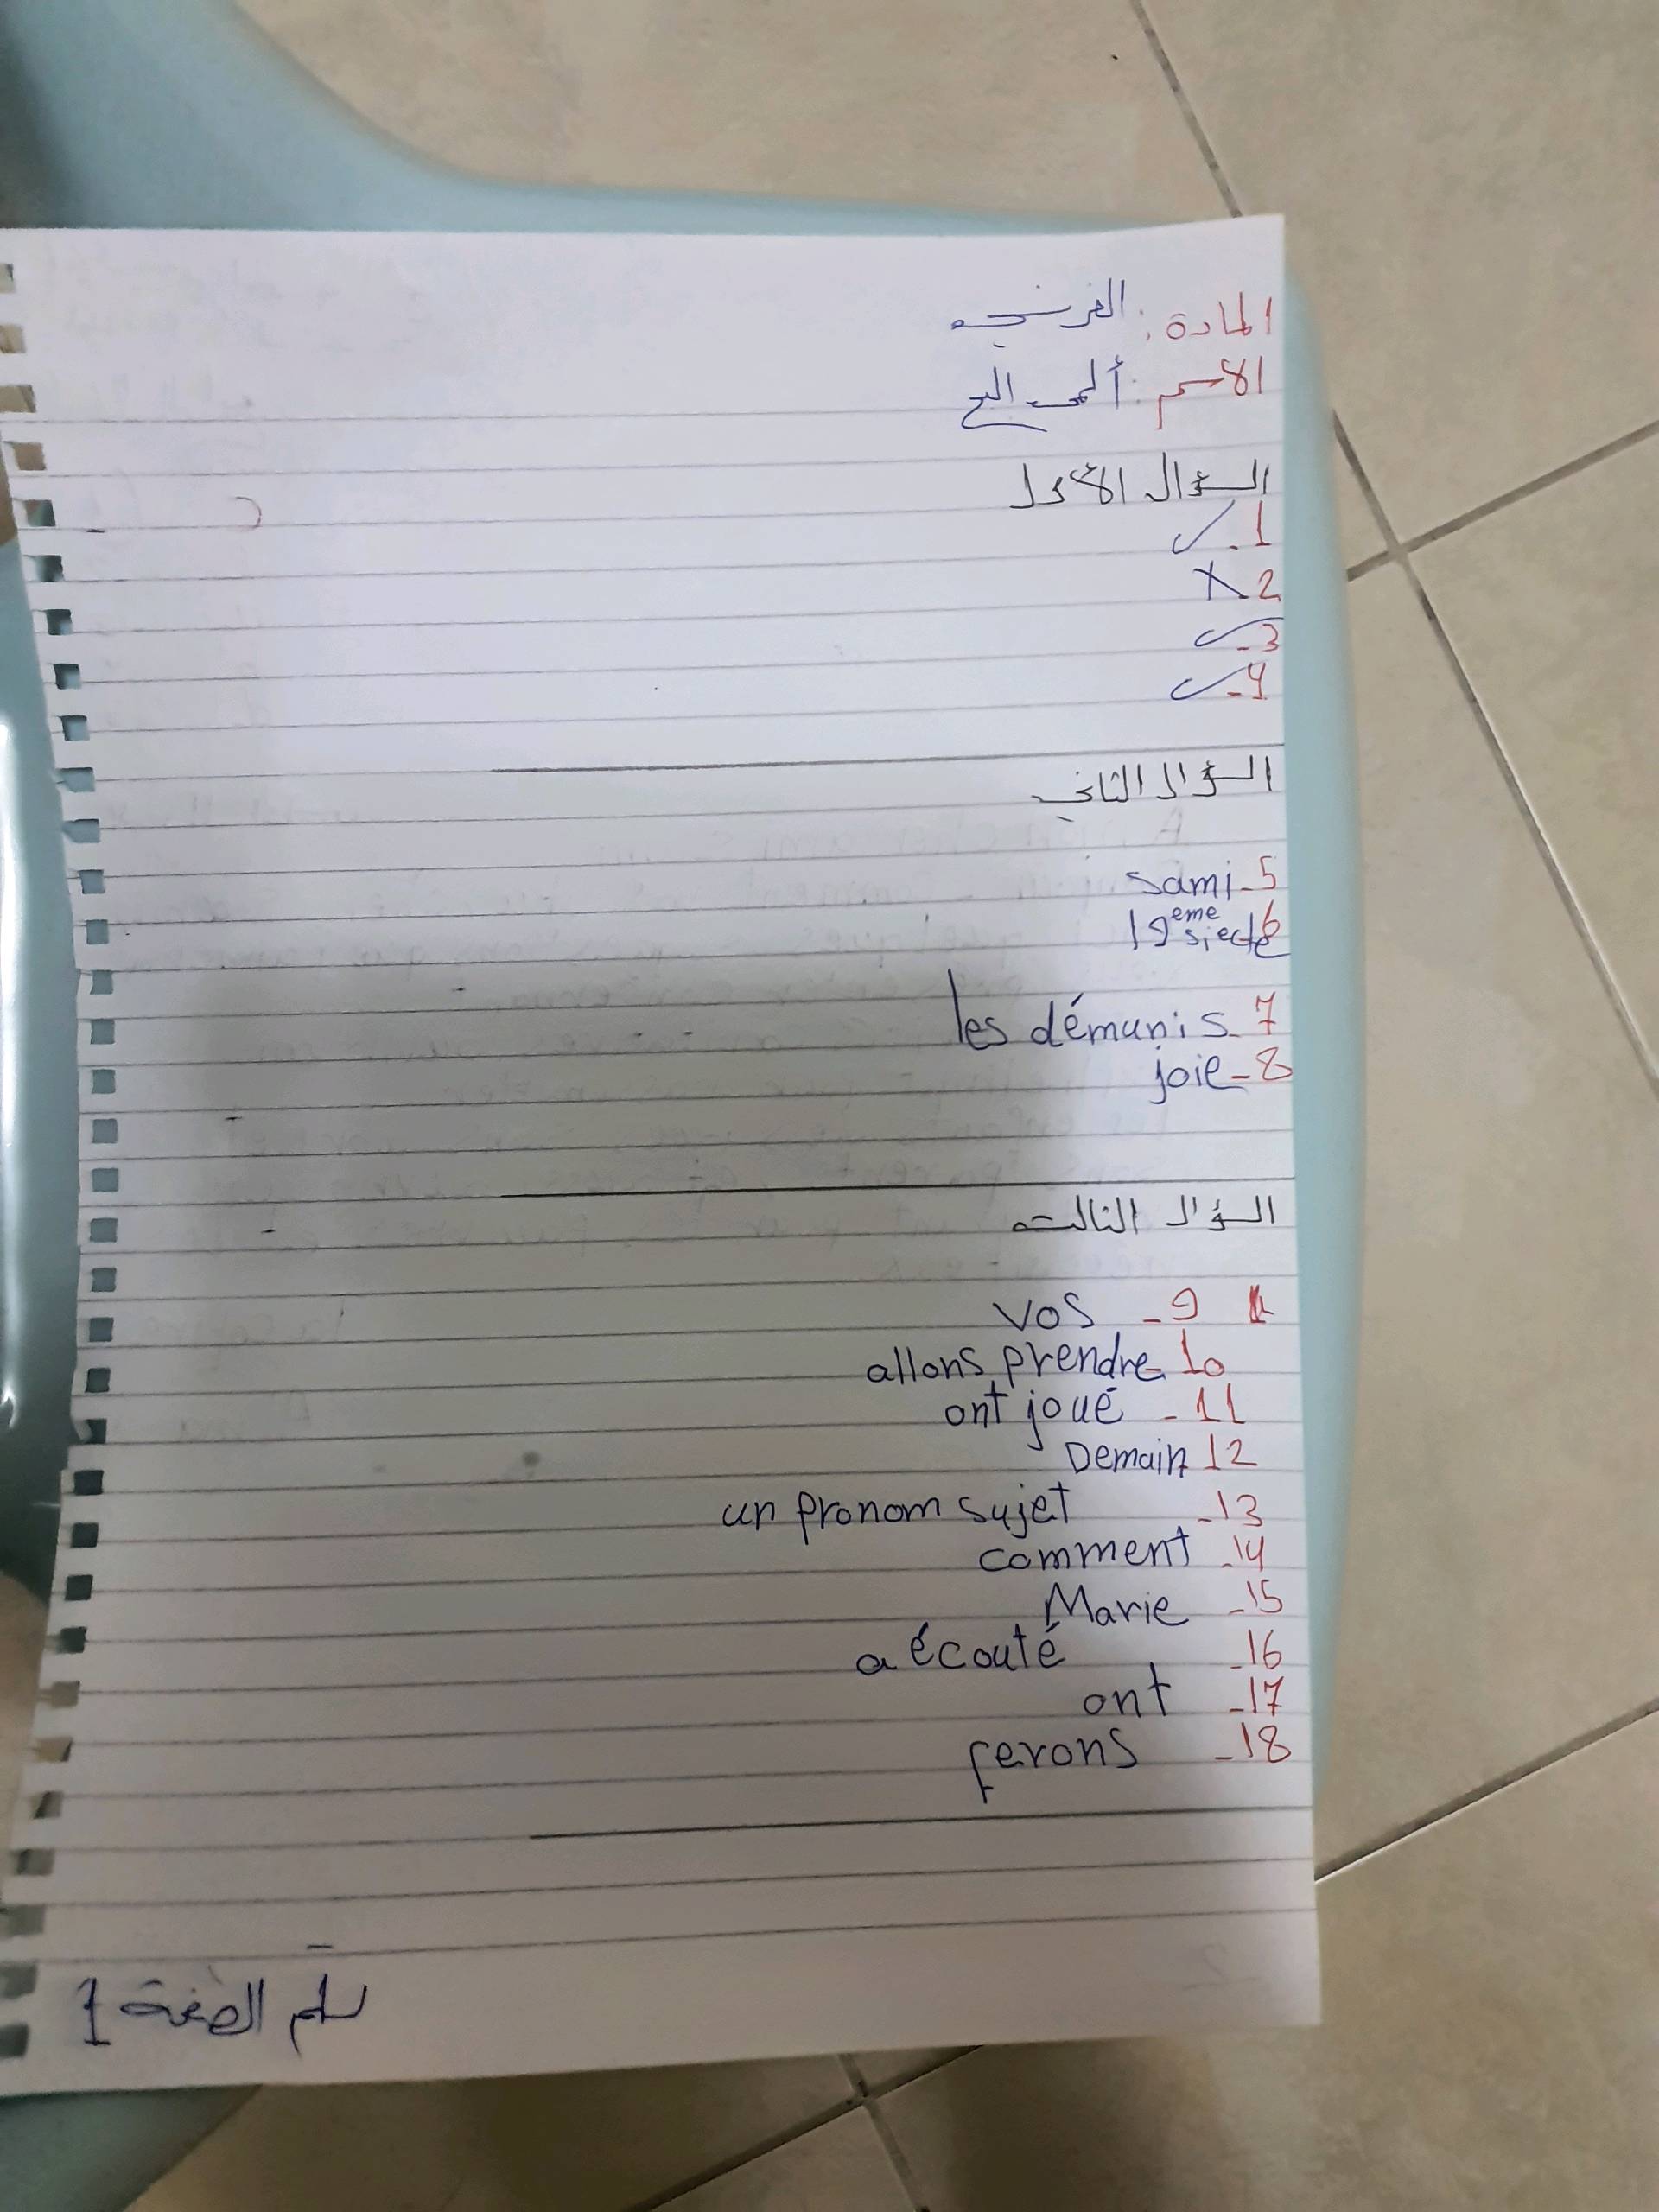 المادة : الفرنسية
الاسم :
السؤال الأول
1- ✓
2- X
3- ✓
4- ✓
السؤال الثاني
5- sami
6 19eme siecle
7- les démunis
8- joie
السؤال الثالث
9- vos
10- allons prendre
11- ont joué
12 Demain
13- un pronom sujet
14- comment
15- Marie
16- a écouté
17- ont
18- ferons
سلم الصفحة 1